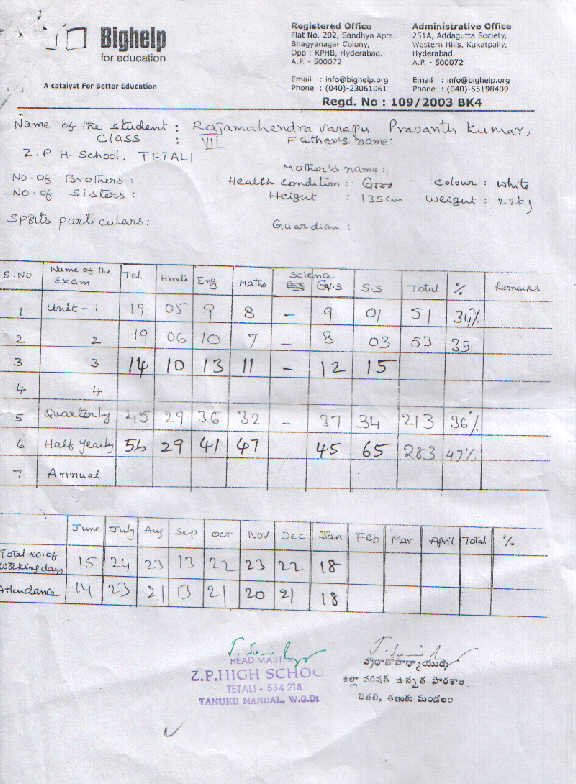 Bighelp
for education
A catalyst For Better Education
Registered Office
Flat No. 202, Sandhya Apts
Bhagyanagar Colony,
Opp : KPHB, Hyderabad.
A.P. - 500072
Email : info@bighelp.org
Phone : (040)-23061061
Administrative Office
251A, Addagutta Society,
Western Hills, Kukatpally,
Hyderabad.
A.P - 500072
Email : info@bighelp.org
Phone : (040)-55198409
Regd. No : 109/2003 BK4
Name of the student : Rajamahendravarapu Prasanth Kumar,
Class : VII Father's name
Z.P.H. School, TETALI Mother's name :
No. of Brothers : Health Condition : Good Colour : white
No. of Sisters : Height : 135cm Weight :
Sports particulars : Guardian :
S.NO Name of the Exam Tel Hindi Eng Maths Science S.S Total % Remarks
1 Unit - 1 19 05 9 8 - 9 01 51 34%
2 2 10 06 10 7 - 8 03 53 35
3 3 14 10 13 11 - 12 15
4 4
5 Quarterly 45 29 36 32 - 37 34 213 36%
6 Half Yearly 56 29 41 47 45 65 283 47%
7 Annual
June July Aug Sep Oct Nov Dec Jan Feb Mar April Total %
Total no. of working days 15 24 23 13 22 23 22 18
Attendance 14 23 21 13 21 20 21 18
HEAD MAST
Z.P.HIGH SCHOO
TETALI - 534 218
TANUKU MANDAL, W.G.Dt
ప్రధానోపాధ్యాయుడు
జిల్లా పరిషత్ ఉన్నత పాఠశాల
తేతలి, తణుకు మండలం